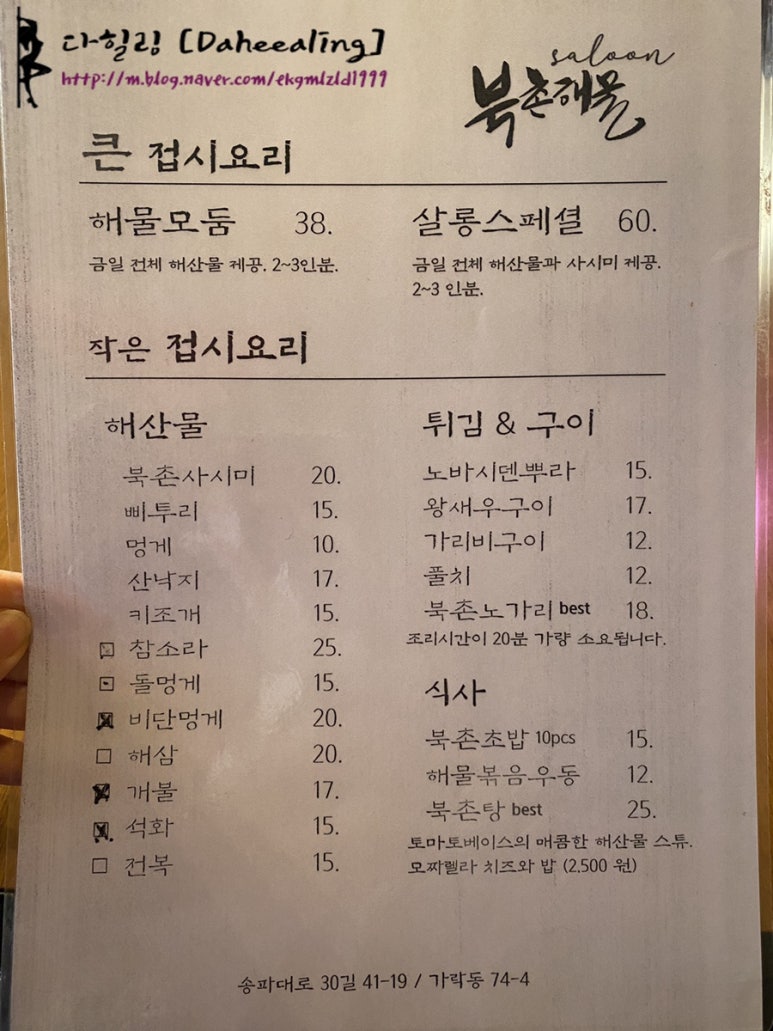 다힐링 [Daheealing]
http://m.blog.naver.com/ekgmlzld1999
saloon
북촌해물
큰 접시요리
해물모둠 38.
금일 전체 해산물 제공. 2~3인분.
살롱스페셜 60.
금일 전체 해산물과 사시미 제공.
2~3 인분.
작은 접시요리
해산물
북촌사시미 20.
삐투리 15.
멍게 10.
산낙지 17.
키조개 15.
참소라 25.
돌멍게 15.
비단멍게 20.
해삼 20.
개불 17.
석화 15.
전복 15.
튀김 & 구이
노바시덴뿌라 15.
왕새우구이 17.
가리비구이 12.
풀치 12.
북촌노가리 best 18.
조리시간이 20분 가량 소요됩니다.
식사
북촌초밥 10pcs 15.
해물볶음우동 12.
북촌탕 best 25.
토마토베이스의 매콤한 해산물 스튜.
모짜렐라 치즈와 밥 (2,500 원)
송파대로 30길 41-19 / 가락동 74-4